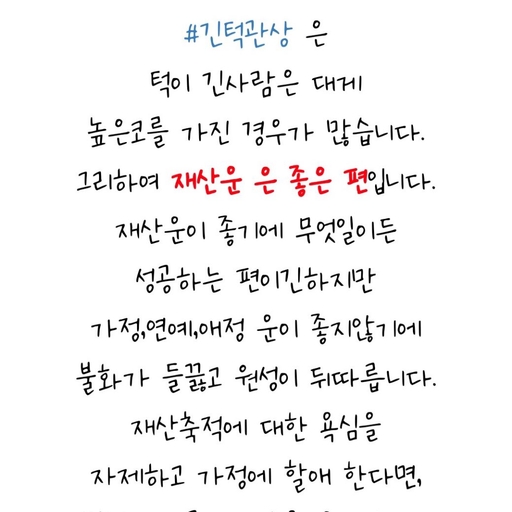 #긴턱관상 은
턱이 긴사람은 대게
높은코를 가진 경우가 많습니다.
그리하여 재산운 은 좋은 편입니다.
재산운이 좋기에 무엇일이든
성공하는 편이긴하지만
가정,연예,애정 운이 좋지않기에
불화가 들끓고 원성이 뒤따릅니다.
재산축적에 대한 욕심을
자제하고 가정에 할애 한다면,